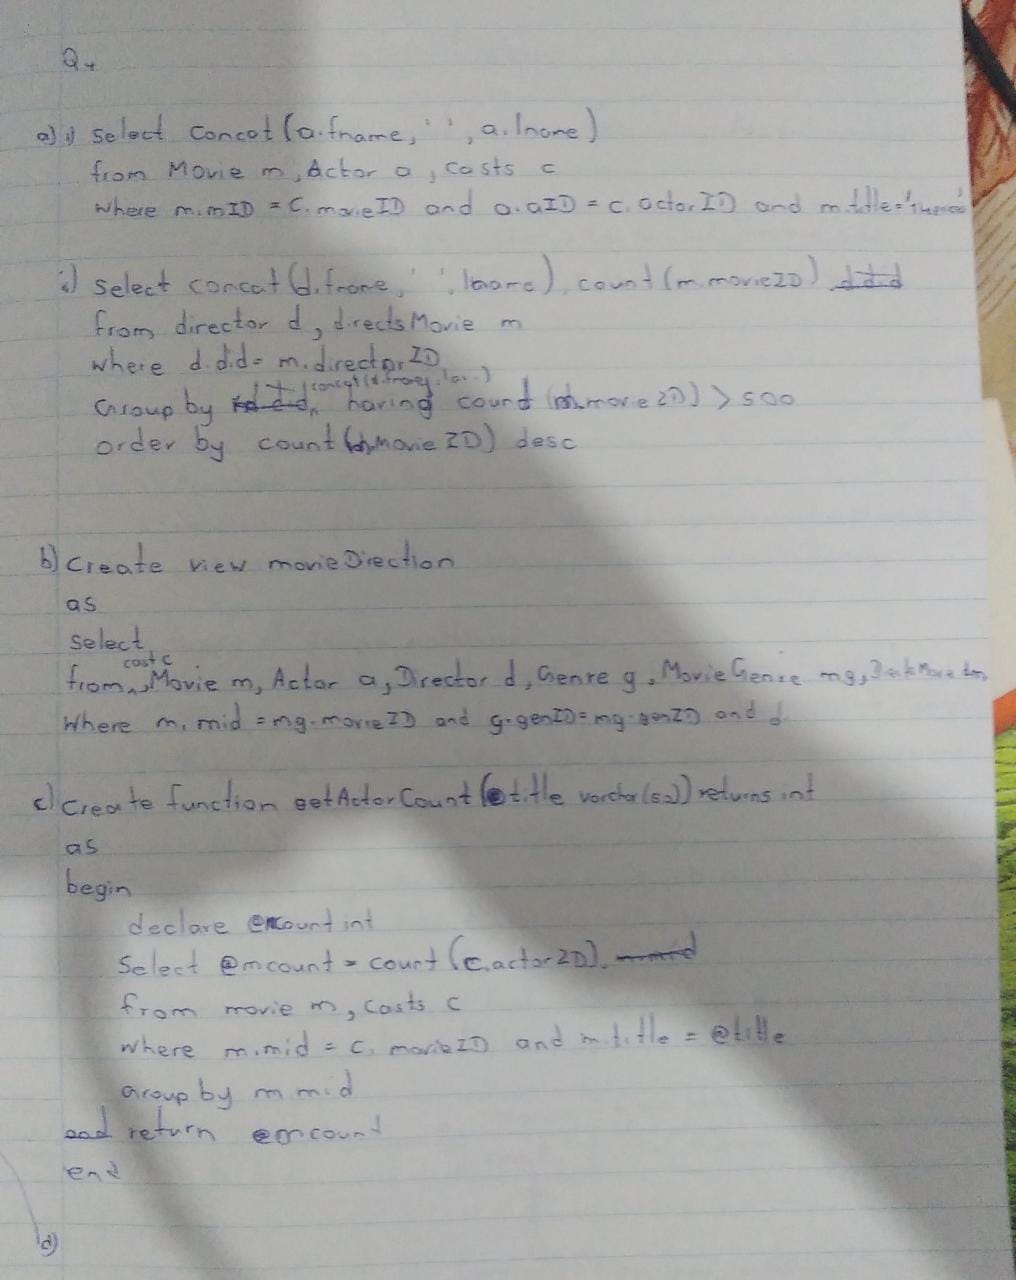 Q4
a) i) select concat (a.fname, ' ', a.lname)
from Movie m, Actor a, casts c
where m.mID = c.movieID and a.aID = c.actorID and m.title='
ii) select concat (d.fname, ' ', lname), count (m.movieID)
from director d, directsMovie m
where d.did = m.directorID
concat(d.fname,
Group by having count (m.movieID) > 500
order by count (m.MovieID) desc
b) create view movieDirection
as
select
cast c
from, Movie m, Actor a, Director d, Genre g, MovieGenre mg,
Where m.mid = mg.movieID and g.genID = mg.genID and d
c) create function getActorCount (@title varchar(52)) returns int
as
begin
declare @mcount int
Select @mcount = count (c.actorID)
from movie m, casts c
where m.mid = c.movieID and m.title = @title
group by m.mid
return @mcount
end
d)